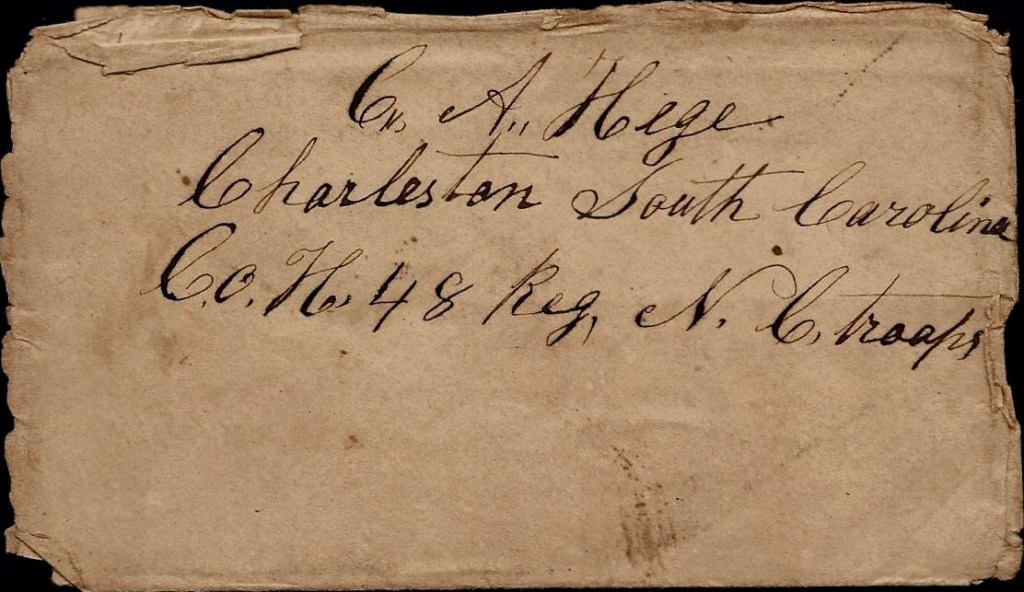 C. A., Hege
Charleston South Carolina
Co. H. 48 Reg, N. C. troops